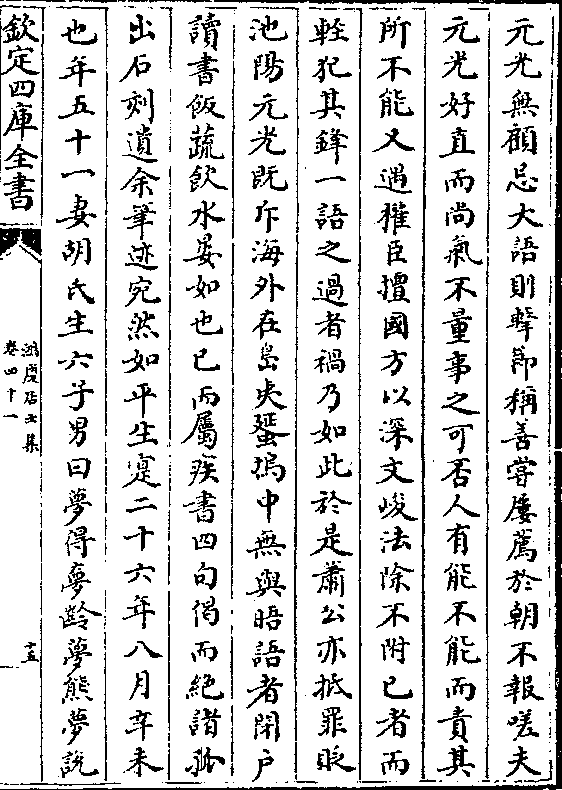 元光無顧忌大語則擊節稱善嘗屢薦於朝不報嗟夫
元光好直而尚氣不量事之可否人有能不能而責其
所不能又遇權臣擅國方以深文峻法除不附已者而
輕犯其鋒一語之過者禍乃如此於是蕭公亦抵罪貶
池陽元光既斥海外在島夷蜑塢中無與晤語者閉户
讀書飯蔬飲水晏如也已而屬疾書四句偈而絶諸孤
出石刻遺余筆迹宛然如平生寔二十六年八月辛未
也年五十一妻胡氏生六子男曰夢得夢齡夢熊夢説
欽定四庫全書
鴻慶居士集
卷四十一
十五